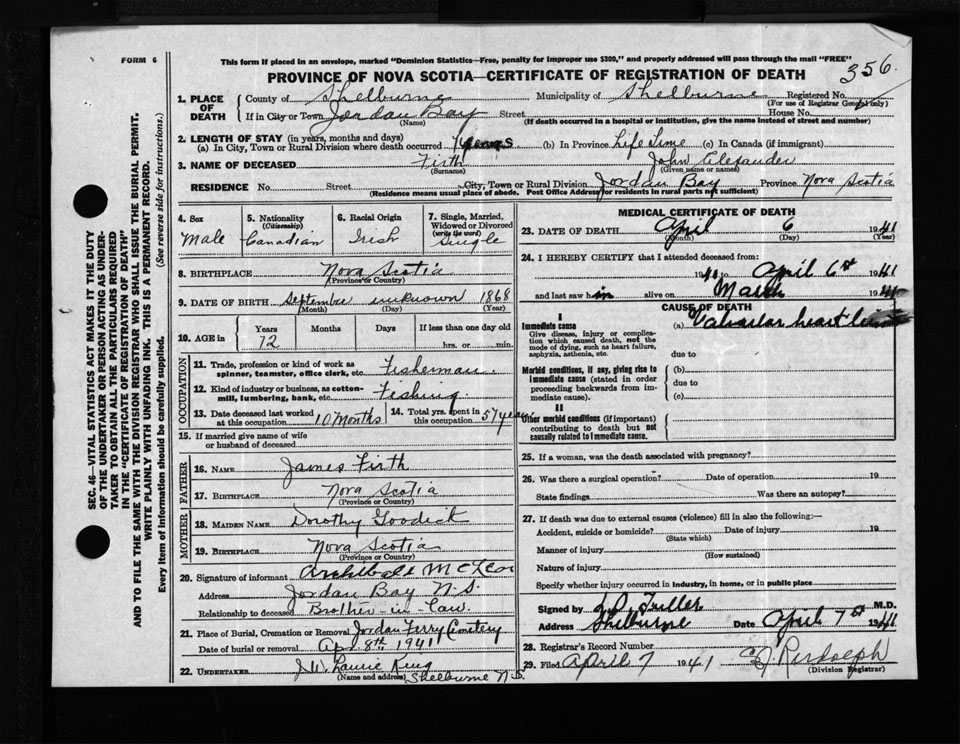 FORM 6
This form if placed in an envelope, marked "Dominion Statistics—Free, penalty for improper use $300," and properly addressed will pass through the mail "FREE"
PROVINCE OF NOVA SCOTIA—CERTIFICATE OF REGISTRATION OF DEATH
356.
1. PLACE OF DEATH { County of Shelburne Municipality of Shelburne Registered No.
(For use of Registrar General only)
If in City or Town Jordan Bay Street House No.
(Name) (If death occurred in a hospital or institution, give the name instead of street and number)
2. LENGTH OF STAY (in years, months and days)
(a) In City, Town or Rural Division where death occurred years (b) In Province Life Time (c) In Canada (if immigrant)
3. NAME OF DECEASED Firth John Alexander
(Surname) (Given name or names)
RESIDENCE No. Street City, Town or Rural Division Jordan Bay Province Nova Scotia
(Residence means usual place of abode. Post Office Address for residents in rural parts not sufficient)
4. Sex Male
5. Nationality (Citizenship) Canadian
6. Racial Origin Irish
7. Single, Married, Widowed or Divorced (write the word) Single
8. BIRTHPLACE Nova Scotia
(Province or Country)
9. DATE OF BIRTH September unknown 1868
(Month) (Day) (Year)
10. AGE in Years 72 Months Days If less than one day old hrs. or min.
OCCUPATION
11. Trade, profession or kind of work as spinner, teamster, office clerk, etc. Fisherman.
12. Kind of industry or business, as cotton-mill, lumbering, bank, etc. Fishing.
13. Date deceased last worked at this occupation 10 Months
14. Total yrs. spent in this occupation 57 years
15. If married give name of wife or husband of deceased
FATHER
16. NAME James Firth
17. BIRTHPLACE Nova Scotia
(Province or Country)
MOTHER
18. MAIDEN NAME Dorothy Goodick
19. BIRTHPLACE Nova Scotia
(Province or Country)
20. Signature of informant Archibald
Address Jordan Bay N.S.
Relationship to deceased Brother-in-law.
21. Place of Burial, Cremation or Removal Jordan Ferry Cemetery
Date of burial or removal Apr. 8th 1941
22. UNDERTAKER J.W. Laurie King
(Name and address) Shelburne N.S.
MEDICAL CERTIFICATE OF DEATH
23. DATE OF DEATH April 6 1941
(Month) (Day) (Year)
24. I HEREBY CERTIFY that I attended deceased from:
1941 to April 6th 1941
and last saw him alive on March 1941
CAUSE OF DEATH
I
Immediate cause
Give disease, injury or complication which caused death, not the mode of dying, such as heart failure, asphyxia, asthenia, etc.
(a) Valvular heart
due to
Morbid conditions, if any, giving rise to immediate cause (stated in order proceeding backwards from immediate cause).
(b)
due to
(c)
II
Other morbid conditions (if important) contributing to death but not causally related to immediate cause.
25. If a woman, was the death associated with pregnancy?
26. Was there a surgical operation? Date of operation 19
State findings Was there an autopsy?
27. If death was due to external causes (violence) fill in also the following:—
Accident, suicide or homicide? Date of injury 19
(State which)
Manner of injury
(How sustained)
Nature of injury
Specify whether injury occurred in industry, in home, or in public place
Signed by Fuller M.D.
Address Shelburne Date April 7th 1941
28. Registrar's Record Number
29. Filed April 7 1941
(Division Registrar)
SEC. 46—VITAL STATISTICS ACT MAKES IT THE DUTY
OF THE UNDERTAKER OR PERSON ACTING AS UNDER-
TAKER TO OBTAIN ALL THE PARTICULARS REQUIRED
IN THE "CERTIFICATE OF REGISTRATION OF DEATH"
AND TO FILE THE SAME WITH THE DIVISION REGISTRAR WHO SHALL ISSUE THE BURIAL PERMIT.
WRITE PLAINLY WITH UNFADING INK. THIS IS A PERMANENT RECORD.
Every item of information should be carefully supplied. (See reverse side for instructions.)